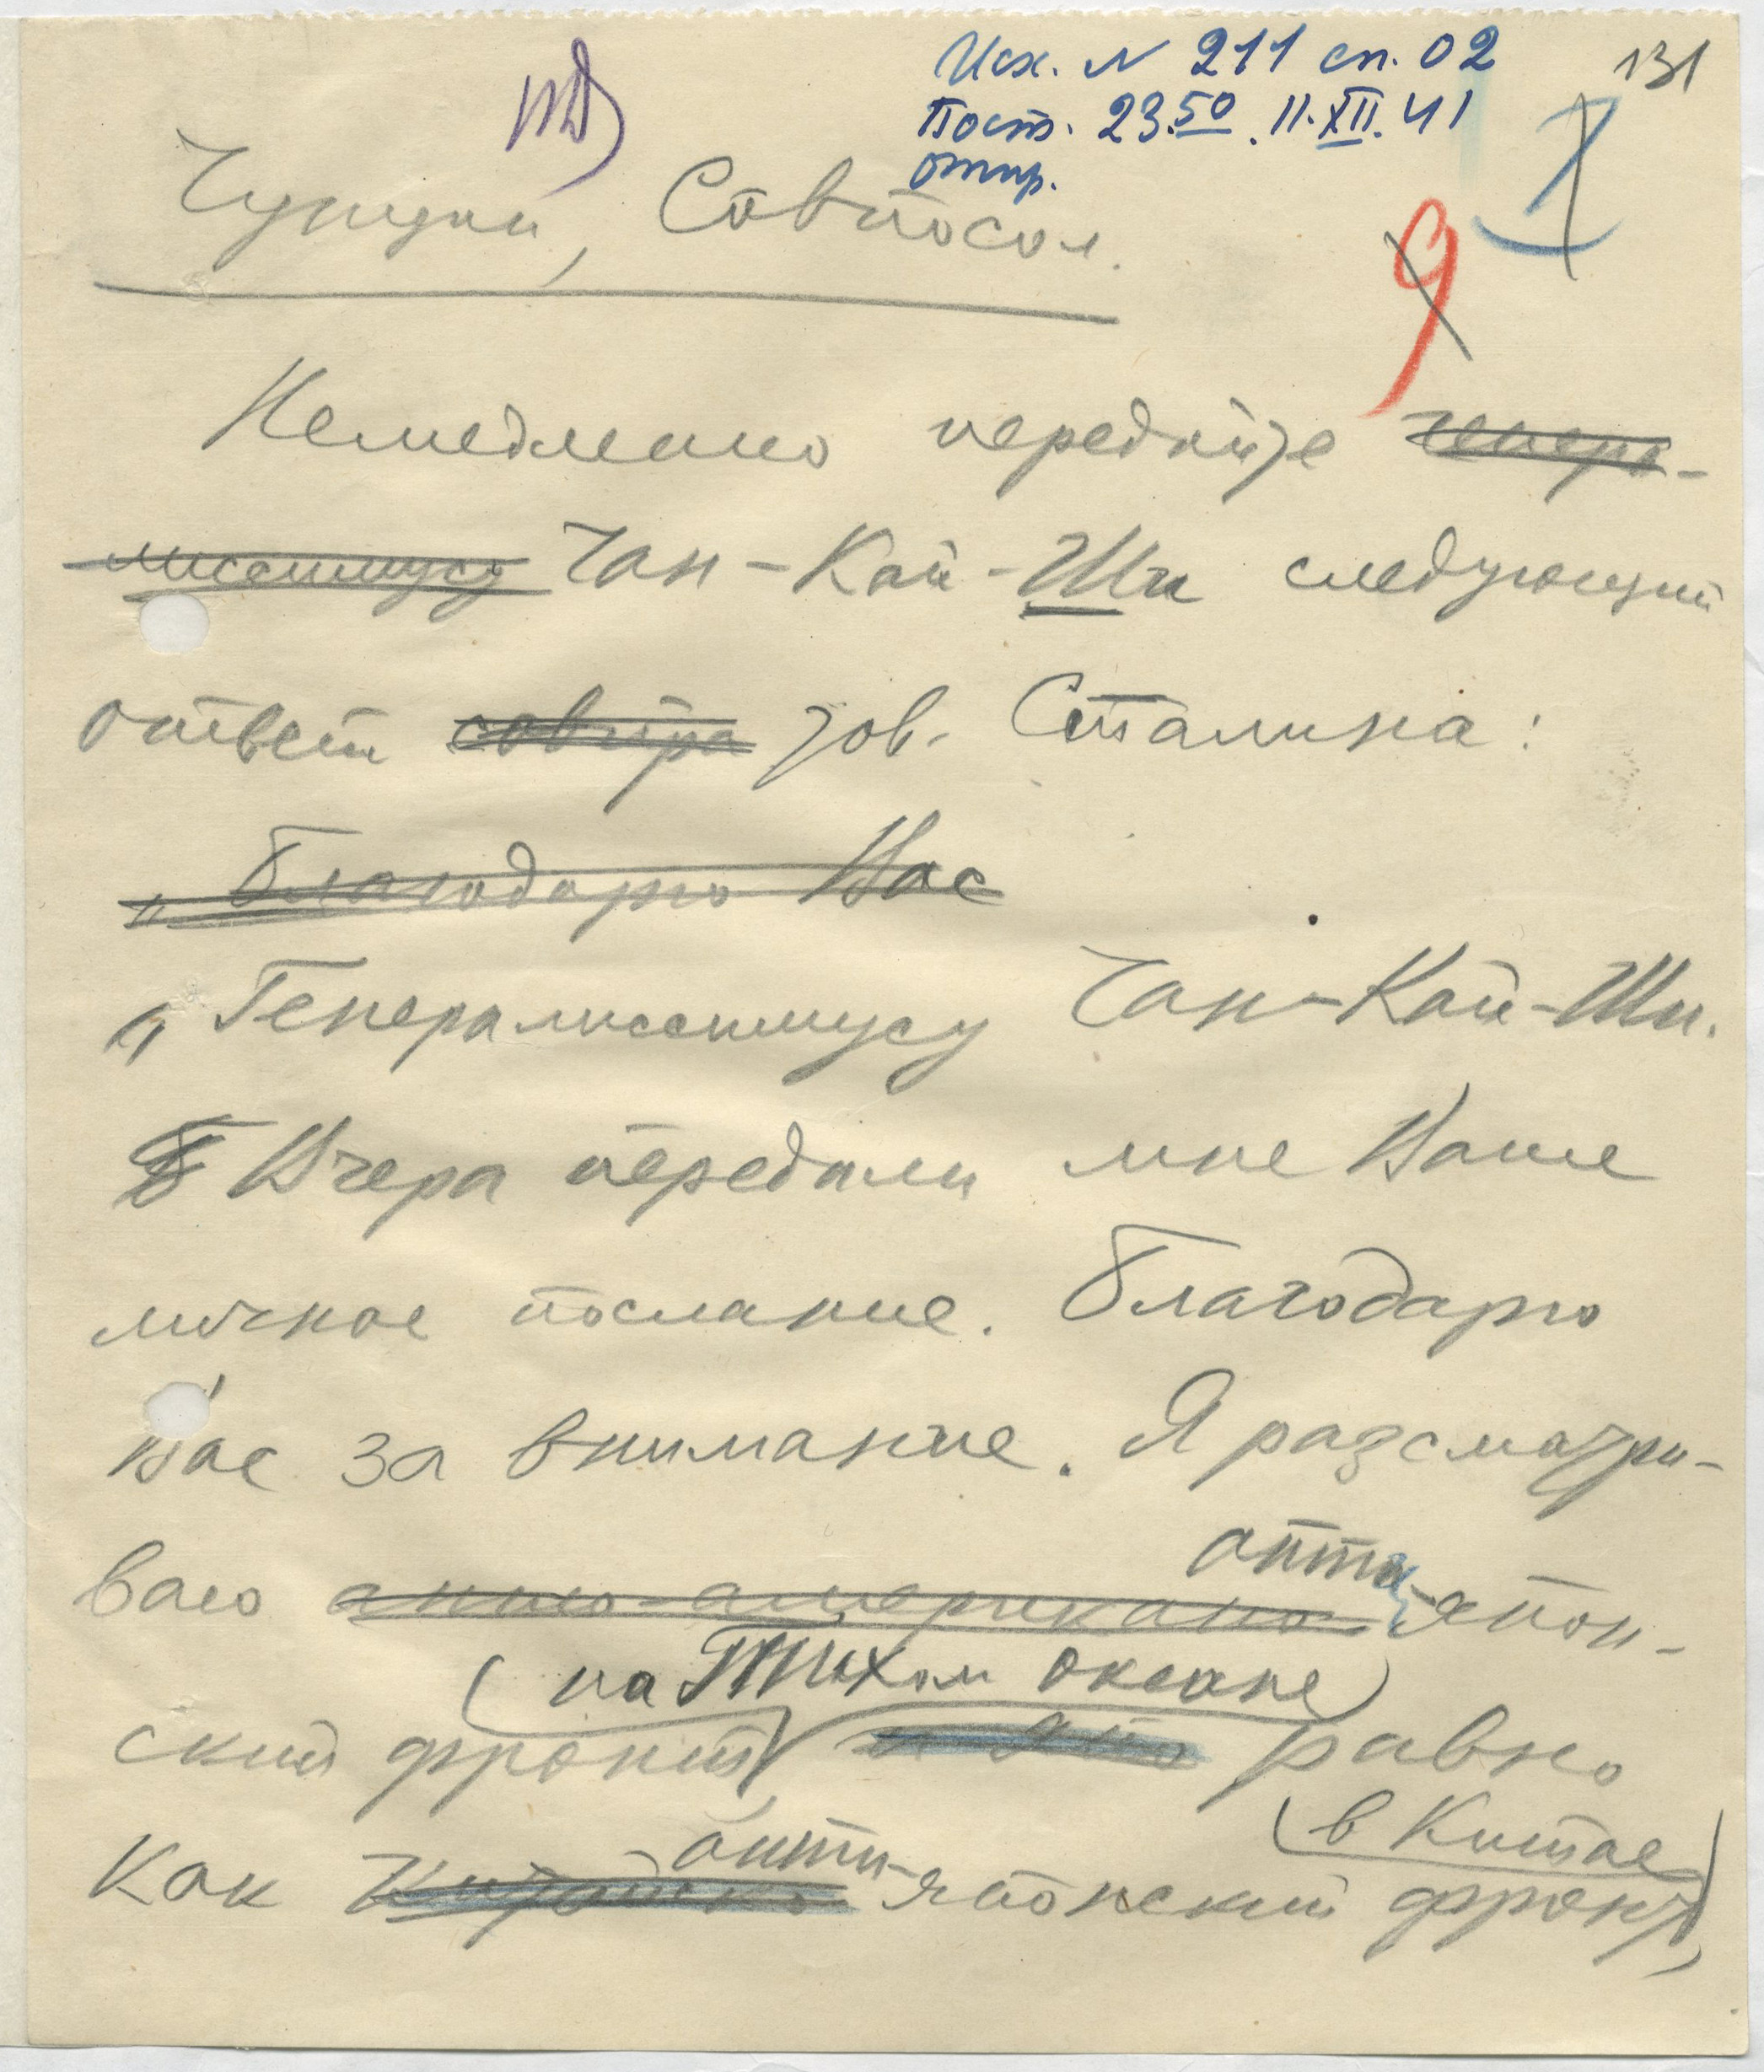 Исх. № 211 сп. 02
131
Пост. 23.50. 11.XII.41
отпр.
Чунцин, Совпосол.
9
Немедленно передайте генера-
лиссимусу Чан-Кай-Ши следующий
ответ совпра тов. Сталина:
„Благодарю Вас
„Генералиссимусу Чан-Кай-Ши.
Б Вчера передали мне Ваше
личное послание. Благодарю
Вас за внимание. Я разсматри-
ваю англо-американо анти-япон-
(на Тихом океане)
ский фронт и япо равно
(в Китае)
как китайско анти-японский фронт,